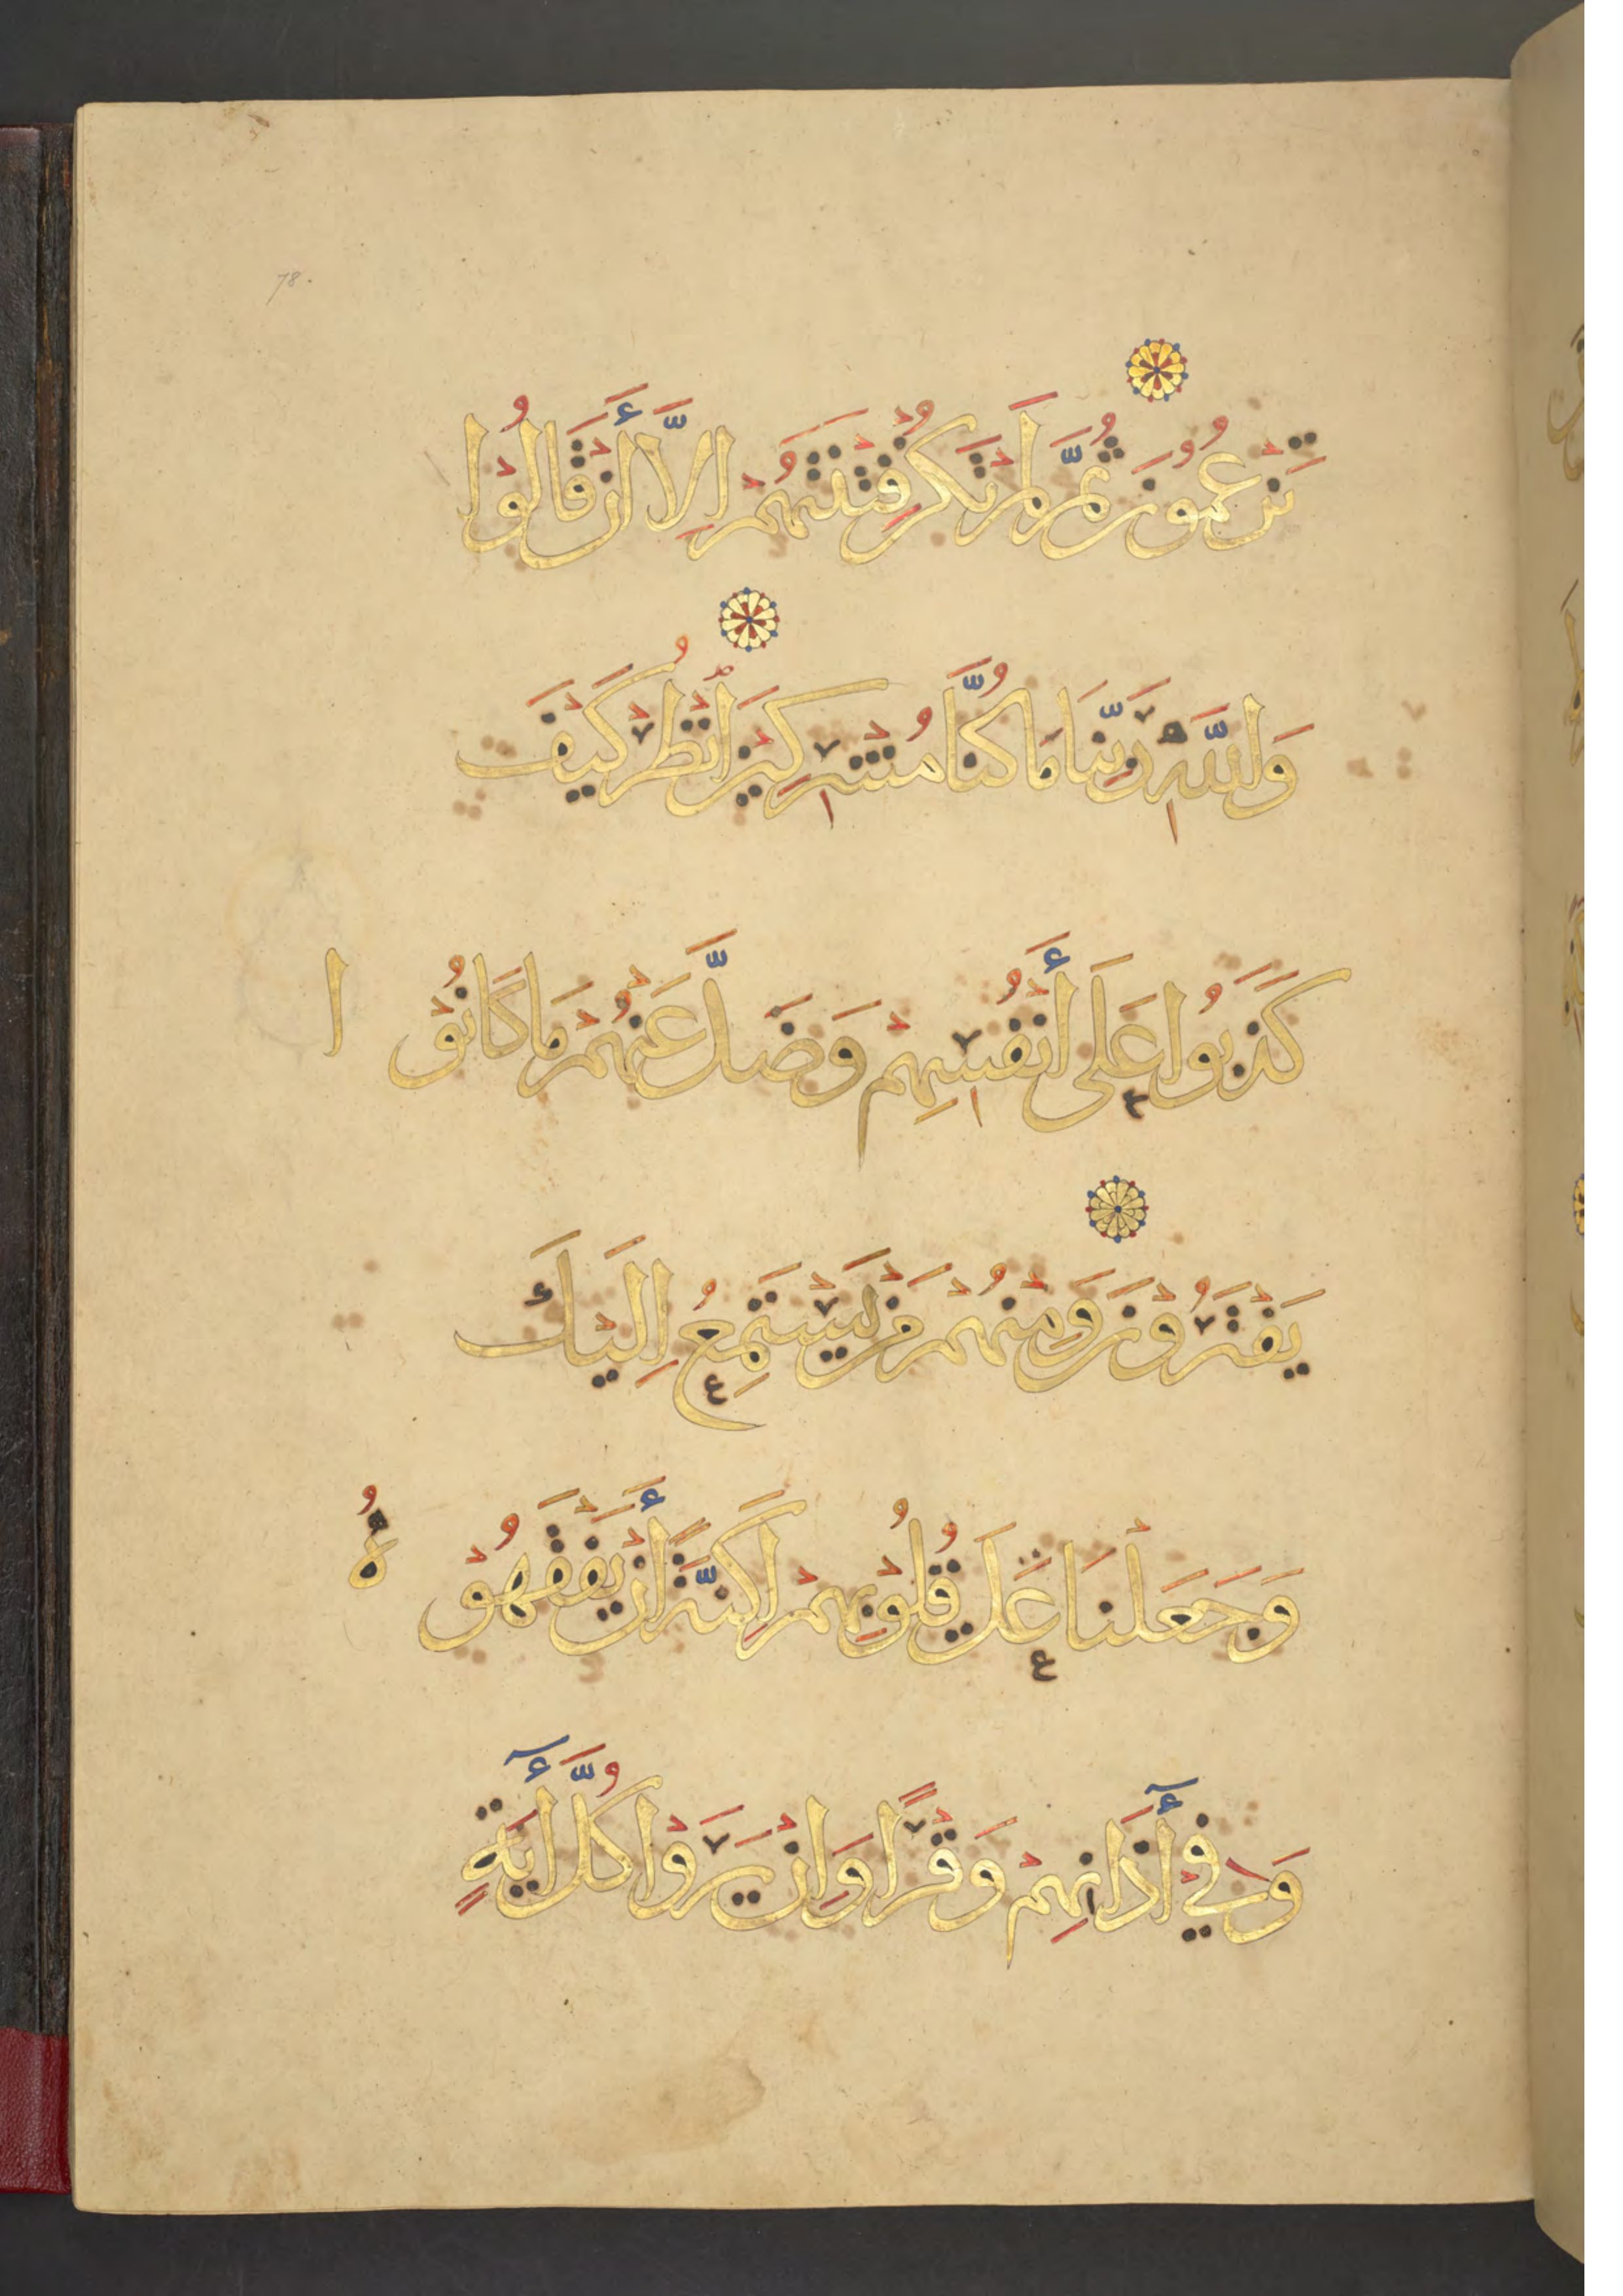 78.
تَزْعُمُونَ ثُمَّ لَمْ تَكُنْ فِتْنَتُهُمْ اِلَّا أَنْ قَالُوا
وَاللَّهِ رَبِّنَا مَا كُنَّا مُشْرِكِيْنَ انْظُرْ كَيْفَ
كَذَبُوا عَلَى أَنْفُسِهِمْ وَضَلَّ عَنْهُمْ مَا كَانُوْ ا
يَفْتَرُوْنَ وَمِنْهُمْ مَنْ يَسْتَمِعُ اِلَيْكَ
وَجَعَلْنَا عَلَى قُلُوْبِهِمْ اَكِنَّةً أَنْ يَفْقَهُوْ هُ
وَفِيْ أٓذَانِهِمْ وَقْرًا وَاِنْ يَرَوْا كُلَّ أٓيَةٍ